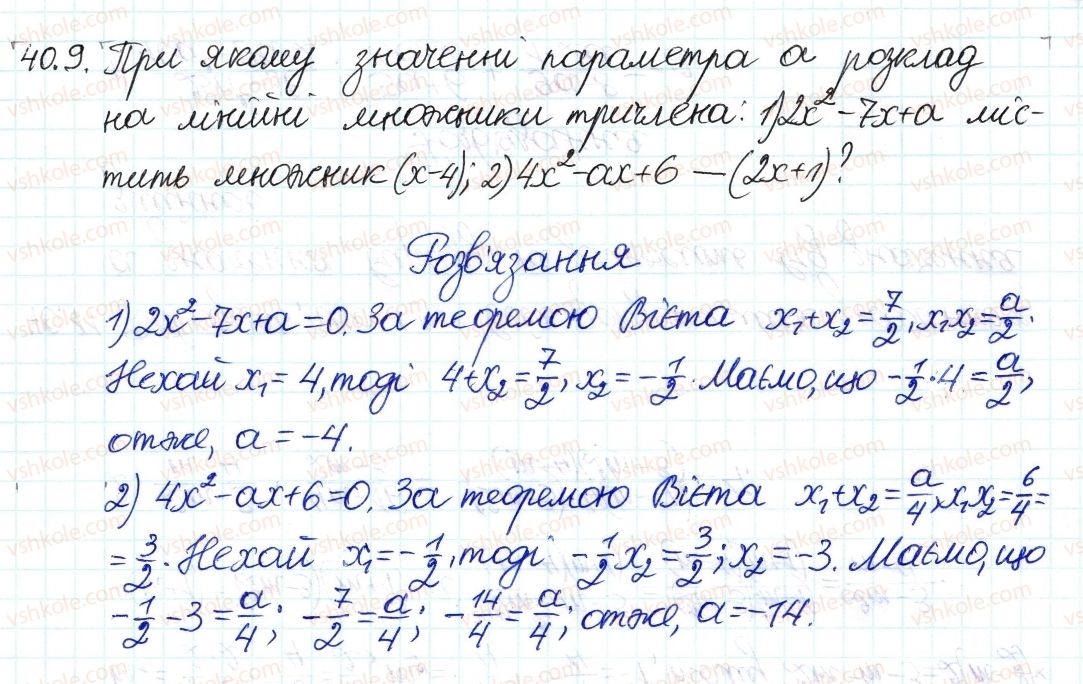 40.9. При якому значенні параметра a розклад
на лінійні множники тричлена: 1) 2x² - 7x + a міс-
тить множник (x-4); 2) 4x² - ax + 6 — (2x+1)?
Розв'язання
1) 2x² - 7x + a = 0. За теоремою Вієта x₁ + x₂ = 7/2, x₁x₂ = a/2.
Нехай x₁ = 4, тоді 4 + x₂ = 7/2, x₂ = -1/2. Маємо, що -1/2 · 4 = a/2,
отже, a = -4.
2) 4x² - ax + 6 = 0. За теоремою Вієта x₁ + x₂ = a/4, x₁x₂ = 6/4 =
= 3/2. Нехай x₁ = -1/2, тоді -1/2 x₂ = 3/2; x₂ = -3. Маємо, що
-1/2 - 3 = a/4; -7/2 = a/4; -14/4 = a/4; отже, a = -14.